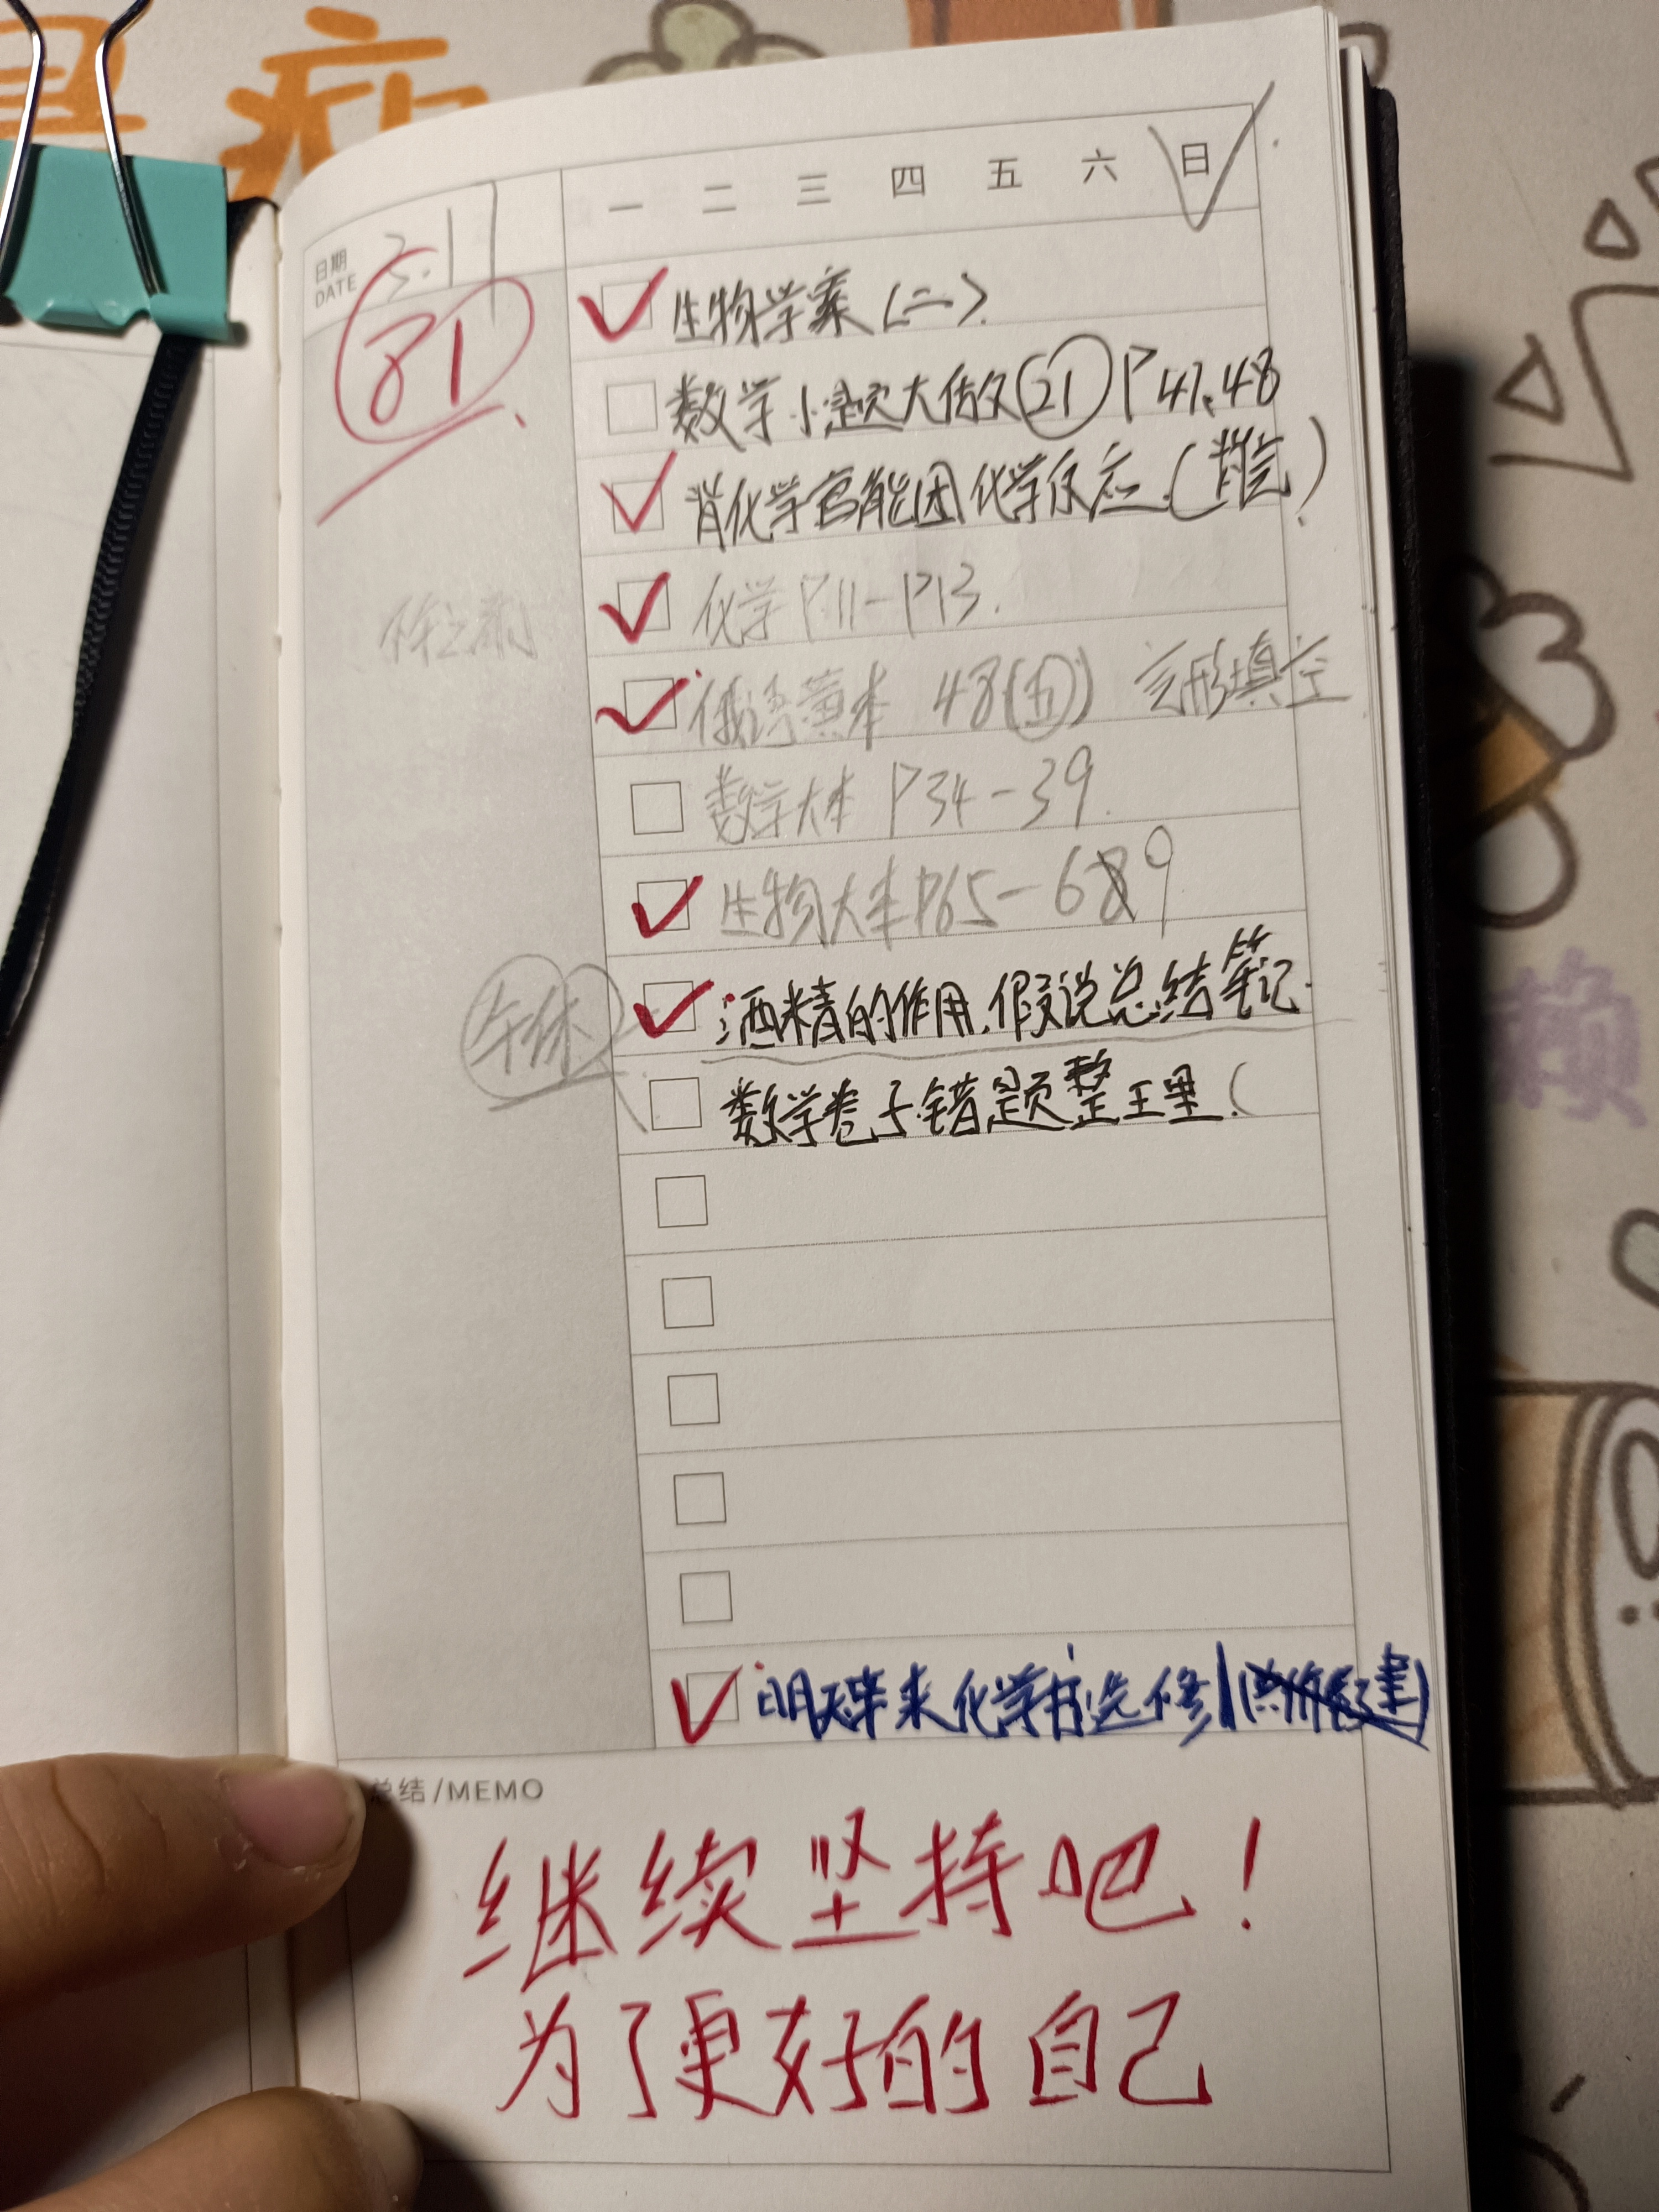 一 二 三 四 五 六 日
日期
DATE
81
生物学案(二)
数学小题大做(21)P47.48
背化学官能团化学反应(背完)
化学P11-P13.
俄语黄本 48(五) 完形填空
数学大本 P34-39.
生物大本P65-69
午休
酒精的作用.假说总结笔记.
数学卷子错题整理(
明天拿来化学书选修1
总结/MEMO
继续坚持吧!
为了更好的自己
懒